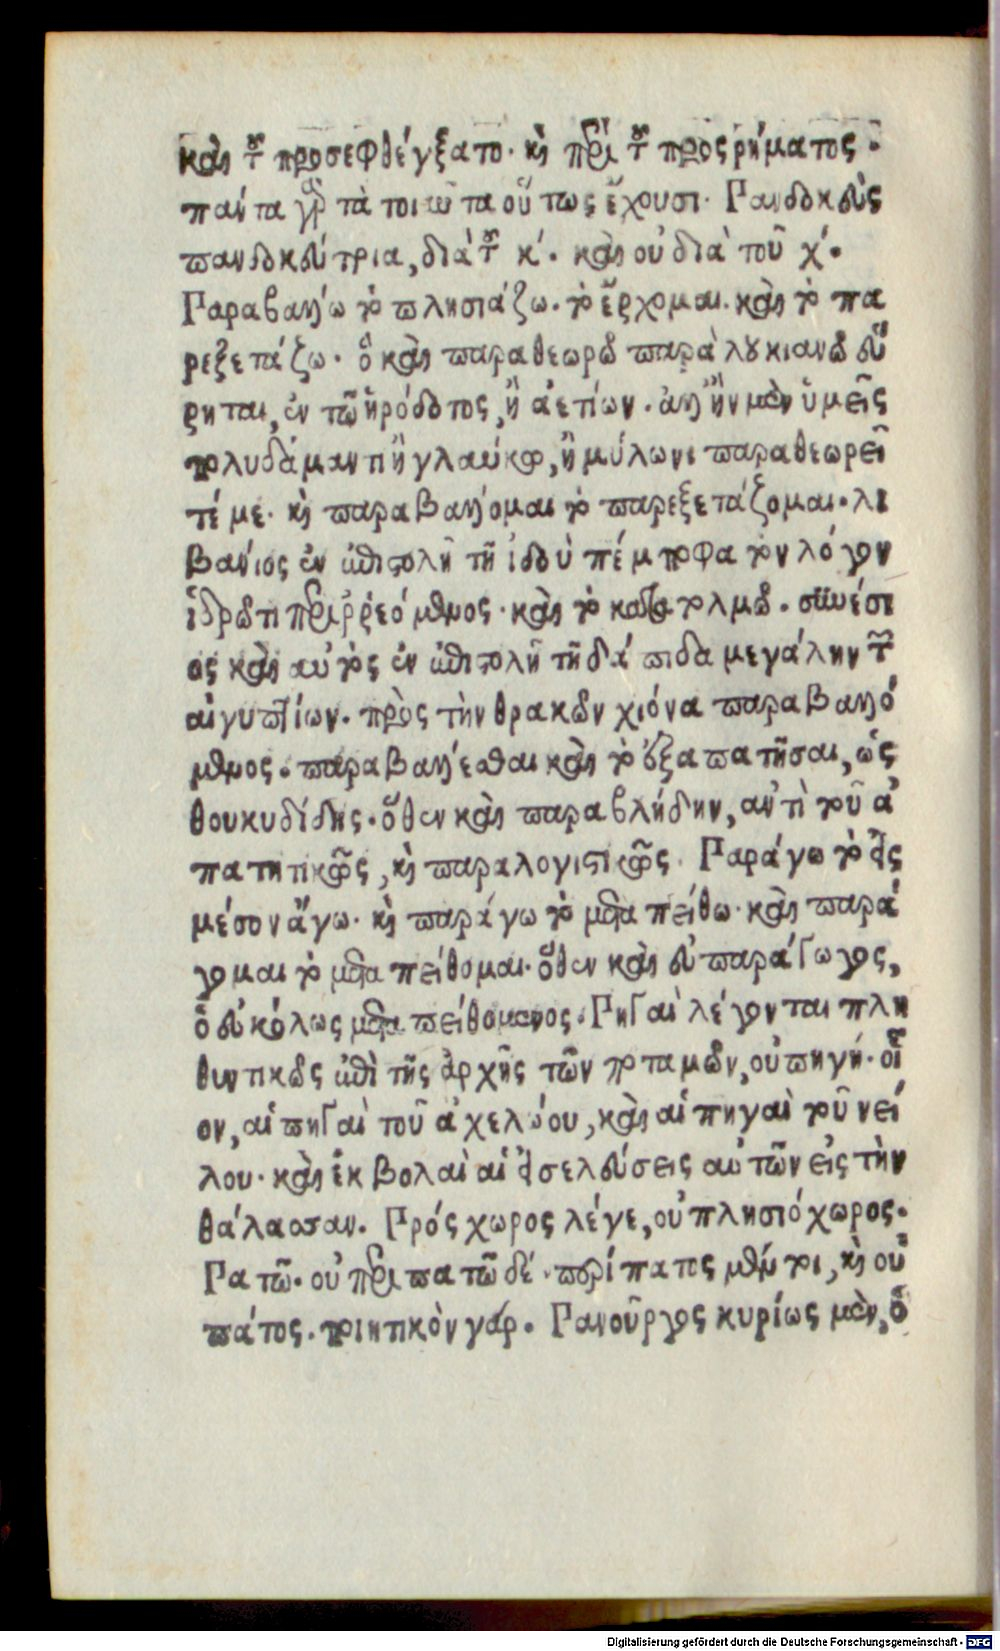 καὶ τὸ προσεφθέγξατο. καὶ περὶ τοῦ προςρήματος.
πάντα γὰρ τὰ τοιαῦτα οὕτως ἔχουσι. Πανδοκεὺς
πανδοκεύτρια, διὰ τοῦ κ. καὶ οὐ διὰ τοῦ χ.
Παραβάλλω τὸ πλησιάζω. τὸ ἔρχομαι. καὶ τὸ πα
ρεξετάζω. ὃ καὶ παραθεωρῶ παρὰ λουκιανῶ εὕ
ρηται, ἐν τῶ ἡρόδοτος, ἢ ἀετίων. ἀλλ' ἢν μὲν ὑμεῖς
πολυδάμαντι ἢ γλαύκω, ἢ μύλωνι παραθεωρεῖ
τέ με. καὶ παραβάλλομαι τὸ παρεξετάζομαι. λι
βάνιος ἐν ἐπιστολῆ τῆ ἰδοὺ πέμπομαι τὸν λόγον
ἱδρῶτι περιρρεόμενος. καὶ τὸ κατατολμῶ. συνέσι
ος καὶ αὐτὸς ἐν ἐπιστολῆ τῆ δάπιδα μεγάλην τῶν
αἰγυπτίων. πρὸς τὴν θρακῶν χιόνα παραβαλλό
μενος. παραβαλλέσθαι καὶ τὸ ἐξαπατῆσαι, ὡς
θουκυδίδης. ὅθεν καὶ παραβλήδην, ἀντὶ τοῦ ἀ
πατητικῶς, καὶ παραλογιστικῶς. Παράγω τὸ εἰς
μέσον ἄγω. καὶ παράγω τὸ μεταπείθω. καὶ παρά
γομαι τὸ μεταπείθομαι. ὅθεν καὶ εὐπαράγωγος,
ὁ εὐκόλως μεταπειθόμενος. Πηγαὶ λέγονται πλη
θυντικῶς ἐπὶ τῆς ἀρχῆς τῶν ποταμῶν, οὐ πηγή. οἷ
ον, αἱ πηγαὶ τοῦ ἀχελώου, καὶ αἱ πηγαὶ τοῦ νεί
λου. καὶ ἐκβολαὶ αἱ εἰσελεύσεις αὐτῶν εἰς τὴν
θάλασσαν. Πρόςχωρος λέγε, οὐ πλησιόχωρος.
Πατῶ. οὐ περιπατῶ δέ. περίπατος μέντοι, καὶ οὐ
πάτος. ποιητικὸν γάρ. Πανοῦργος κυρίως μὲν, ὁ
Digitalisierung gefördert durch die Deutsche Forschungsgemeinschaft - DFG